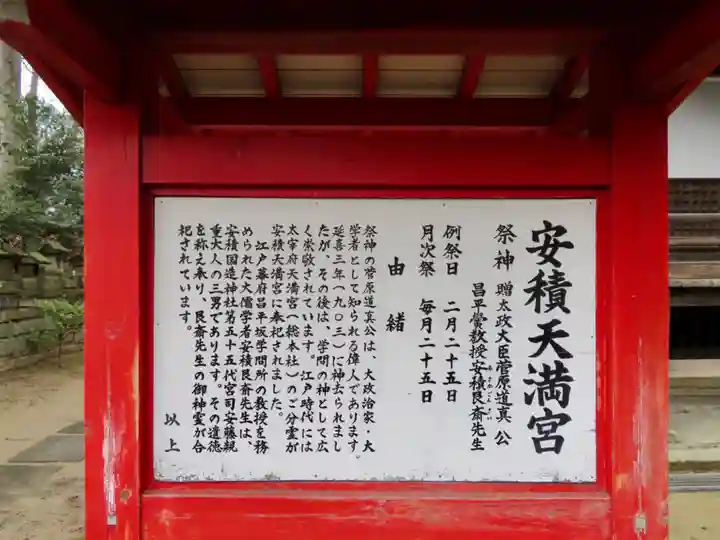 安積天満宮
祭神 贈太政大臣菅原道真公
昌平黌教授安積艮斎先生
例祭日 二月二十五日
月次祭 毎月二十五日
由緒
祭神の菅原道真公は、大政治家・大
学者として知られる偉人であります。
延喜三年(九〇三)に神去られまし
たが、その後は、学問の神として広
く崇敬されています。江戸時代には
太宰府天満宮(総本社)のご分霊が
安積天満宮に奉祀されました。
江戸幕府昌平坂学問所の教授を務
められた大儒学者安積艮斎先生は、
安積国造神社第五十五代宮司安藤親
重大人の三男であります。その遺徳
を称え奉り、艮斎先生の御神霊が合
祀されています。
以上